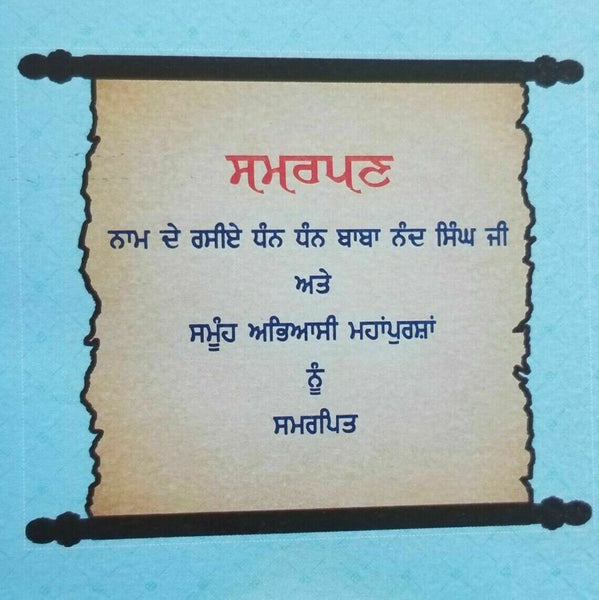 ਸਮਰਪਣ
ਨਾਮ ਦੇ ਰਸੀਏ ਧੰਨ ਧੰਨ ਬਾਬਾ ਨੰਦ ਸਿੰਘ ਜੀ
ਅਤੇ
ਸਮੂੰਹ ਅਭਿਆਸੀ ਮਹਾਂਪੁਰਸ਼ਾਂ
ਨੂੰ
ਸਮਰਪਿਤ